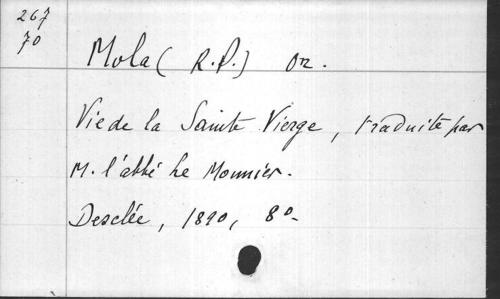 267
70
Mola ( R.P.) Or.
Vie de la Sainte Vierge, traduite par
M. l'abbé Le Monnier.
Desclée, 1890, 8o.